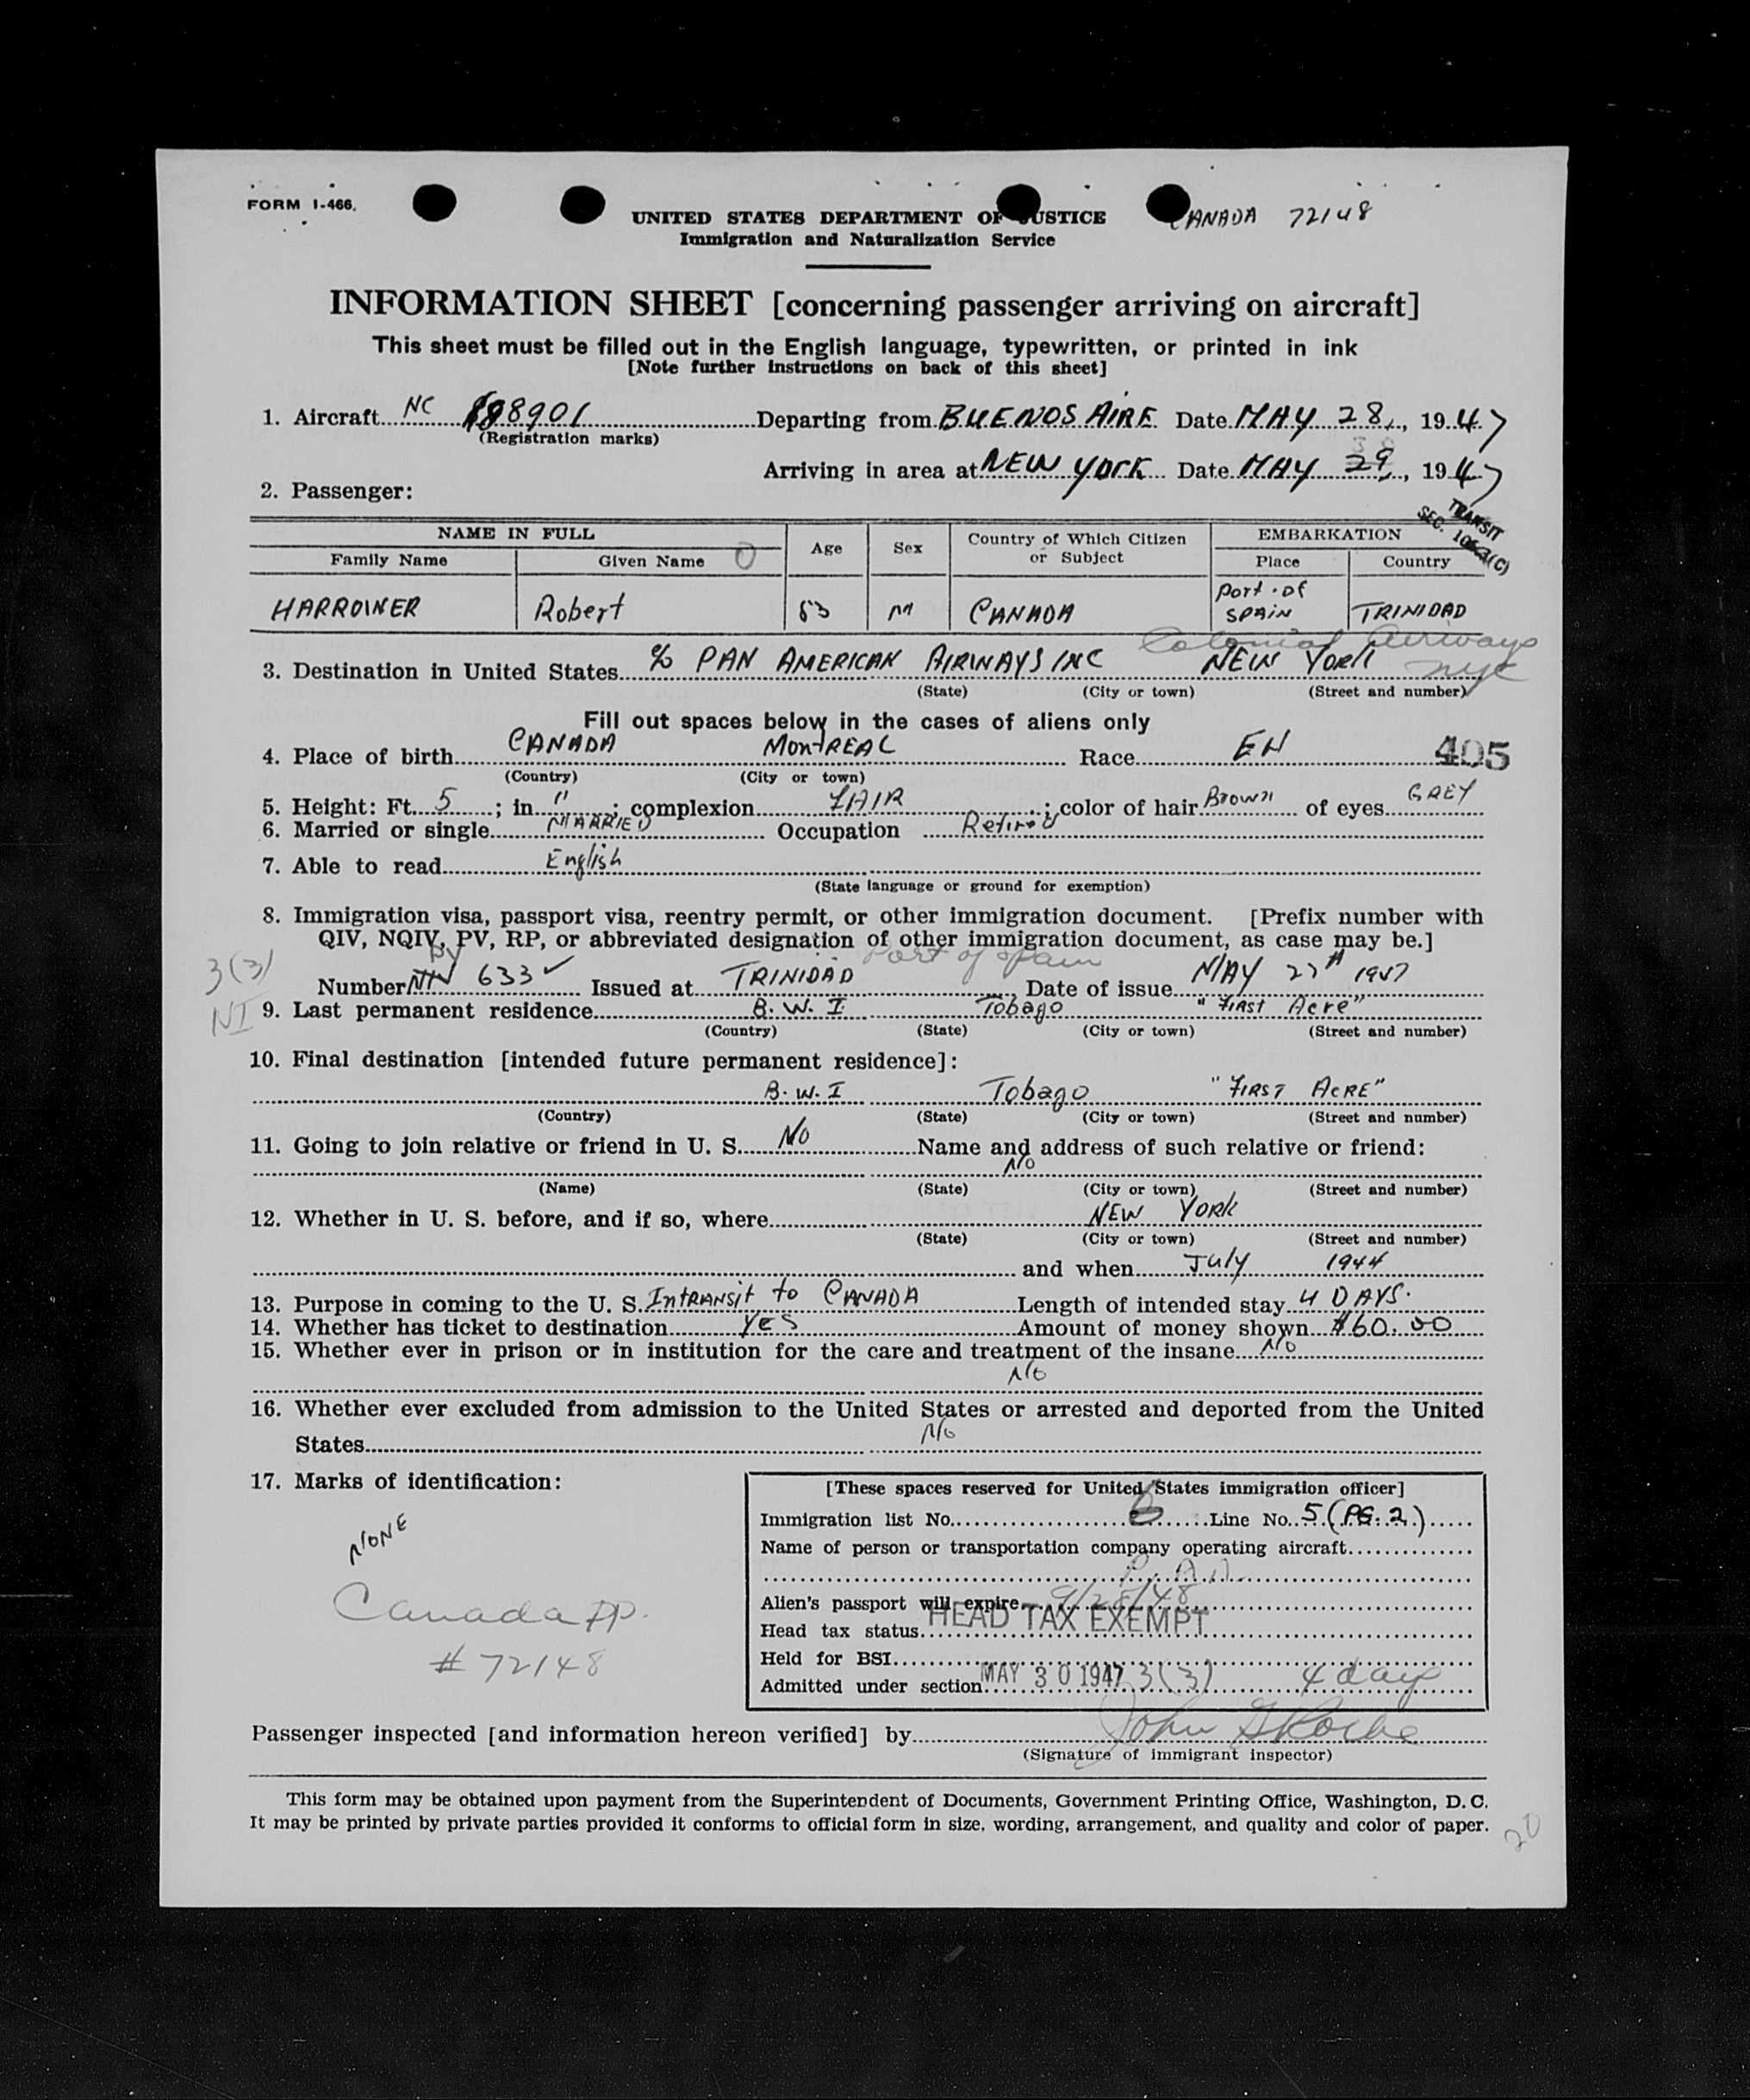 FORM I-466.
UNITED STATES DEPARTMENT OF JUSTICE CANADA 72148
Immigration and Naturalization Service
INFORMATION SHEET [concerning passenger arriving on aircraft]
This sheet must be filled out in the English language, typewritten, or printed in ink
[Note further instructions on back of this sheet]
1. Aircraft NC 88901 Departing from BUENOS AIRE Date MAY 28, 1947
(Registration marks)
Arriving in area at NEW YORK Date MAY 29, 1947
2. Passenger:
TRANSIT
SEC.
NAME IN FULL Age Sex Country of Which Citizen or Subject EMBARKATION
Family Name Given Name Place Country
HARROWER Robert 53 M CANADA Port of SPAIN TRINIDAD
Colonial Airways
3. Destination in United States % PAN AMERICAN AIRWAYS INC NEW YORK NYC
(State) (City or town) (Street and number)
Fill out spaces below in the cases of aliens only
4. Place of birth CANADA MONTREAL Race EN 405
(Country) (City or town)
5. Height: Ft. 5; in 11; complexion FAIR; color of hair Brown of eyes GREY
6. Married or single MARRIED Occupation Retired
7. Able to read English
(State language or ground for exemption)
8. Immigration visa, passport visa, reentry permit, or other immigration document. [Prefix number with
QIV, NQIV, PV, RP, or abbreviated designation of other immigration document, as case may be.]
3(3) PV Port of Spain
Number 633 ✓ Issued at TRINIDAD Date of issue MAY 27th 1947
NI 9. Last permanent residence B.W.I Tobago "FIRST Acre"
(Country) (State) (City or town) (Street and number)
10. Final destination [intended future permanent residence]:
B.W.I Tobago "FIRST ACRE"
(Country) (State) (City or town) (Street and number)
11. Going to join relative or friend in U. S. No Name and address of such relative or friend:
No
(Name) (State) (City or town) (Street and number)
12. Whether in U. S. before, and if so, where NEW YORK
(State) (City or town) (Street and number)
and when July 1944
13. Purpose in coming to the U. S. INTRANSIT to CANADA Length of intended stay 4 DAYS.
14. Whether has ticket to destination YES Amount of money shown $60.00
15. Whether ever in prison or in institution for the care and treatment of the insane No
No
16. Whether ever excluded from admission to the United States or arrested and deported from the United
States No
17. Marks of identification:
NONE
Canada PP.
# 72148
[These spaces reserved for United States immigration officer]
Immigration list No. Line No. 5 (PG. 2)
Name of person or transportation company operating aircraft
P.A.A.
Alien's passport will expire 9/25/48
Head tax status HEAD TAX EXEMPT
Held for BSI
Admitted under section MAY 30 1947 3(3) 4 days
Passenger inspected [and information hereon verified] by John
(Signature of immigrant inspector)
This form may be obtained upon payment from the Superintendent of Documents, Government Printing Office, Washington, D. C.
It may be printed by private parties provided it conforms to official form in size, wording, arrangement, and quality and color of paper.
20